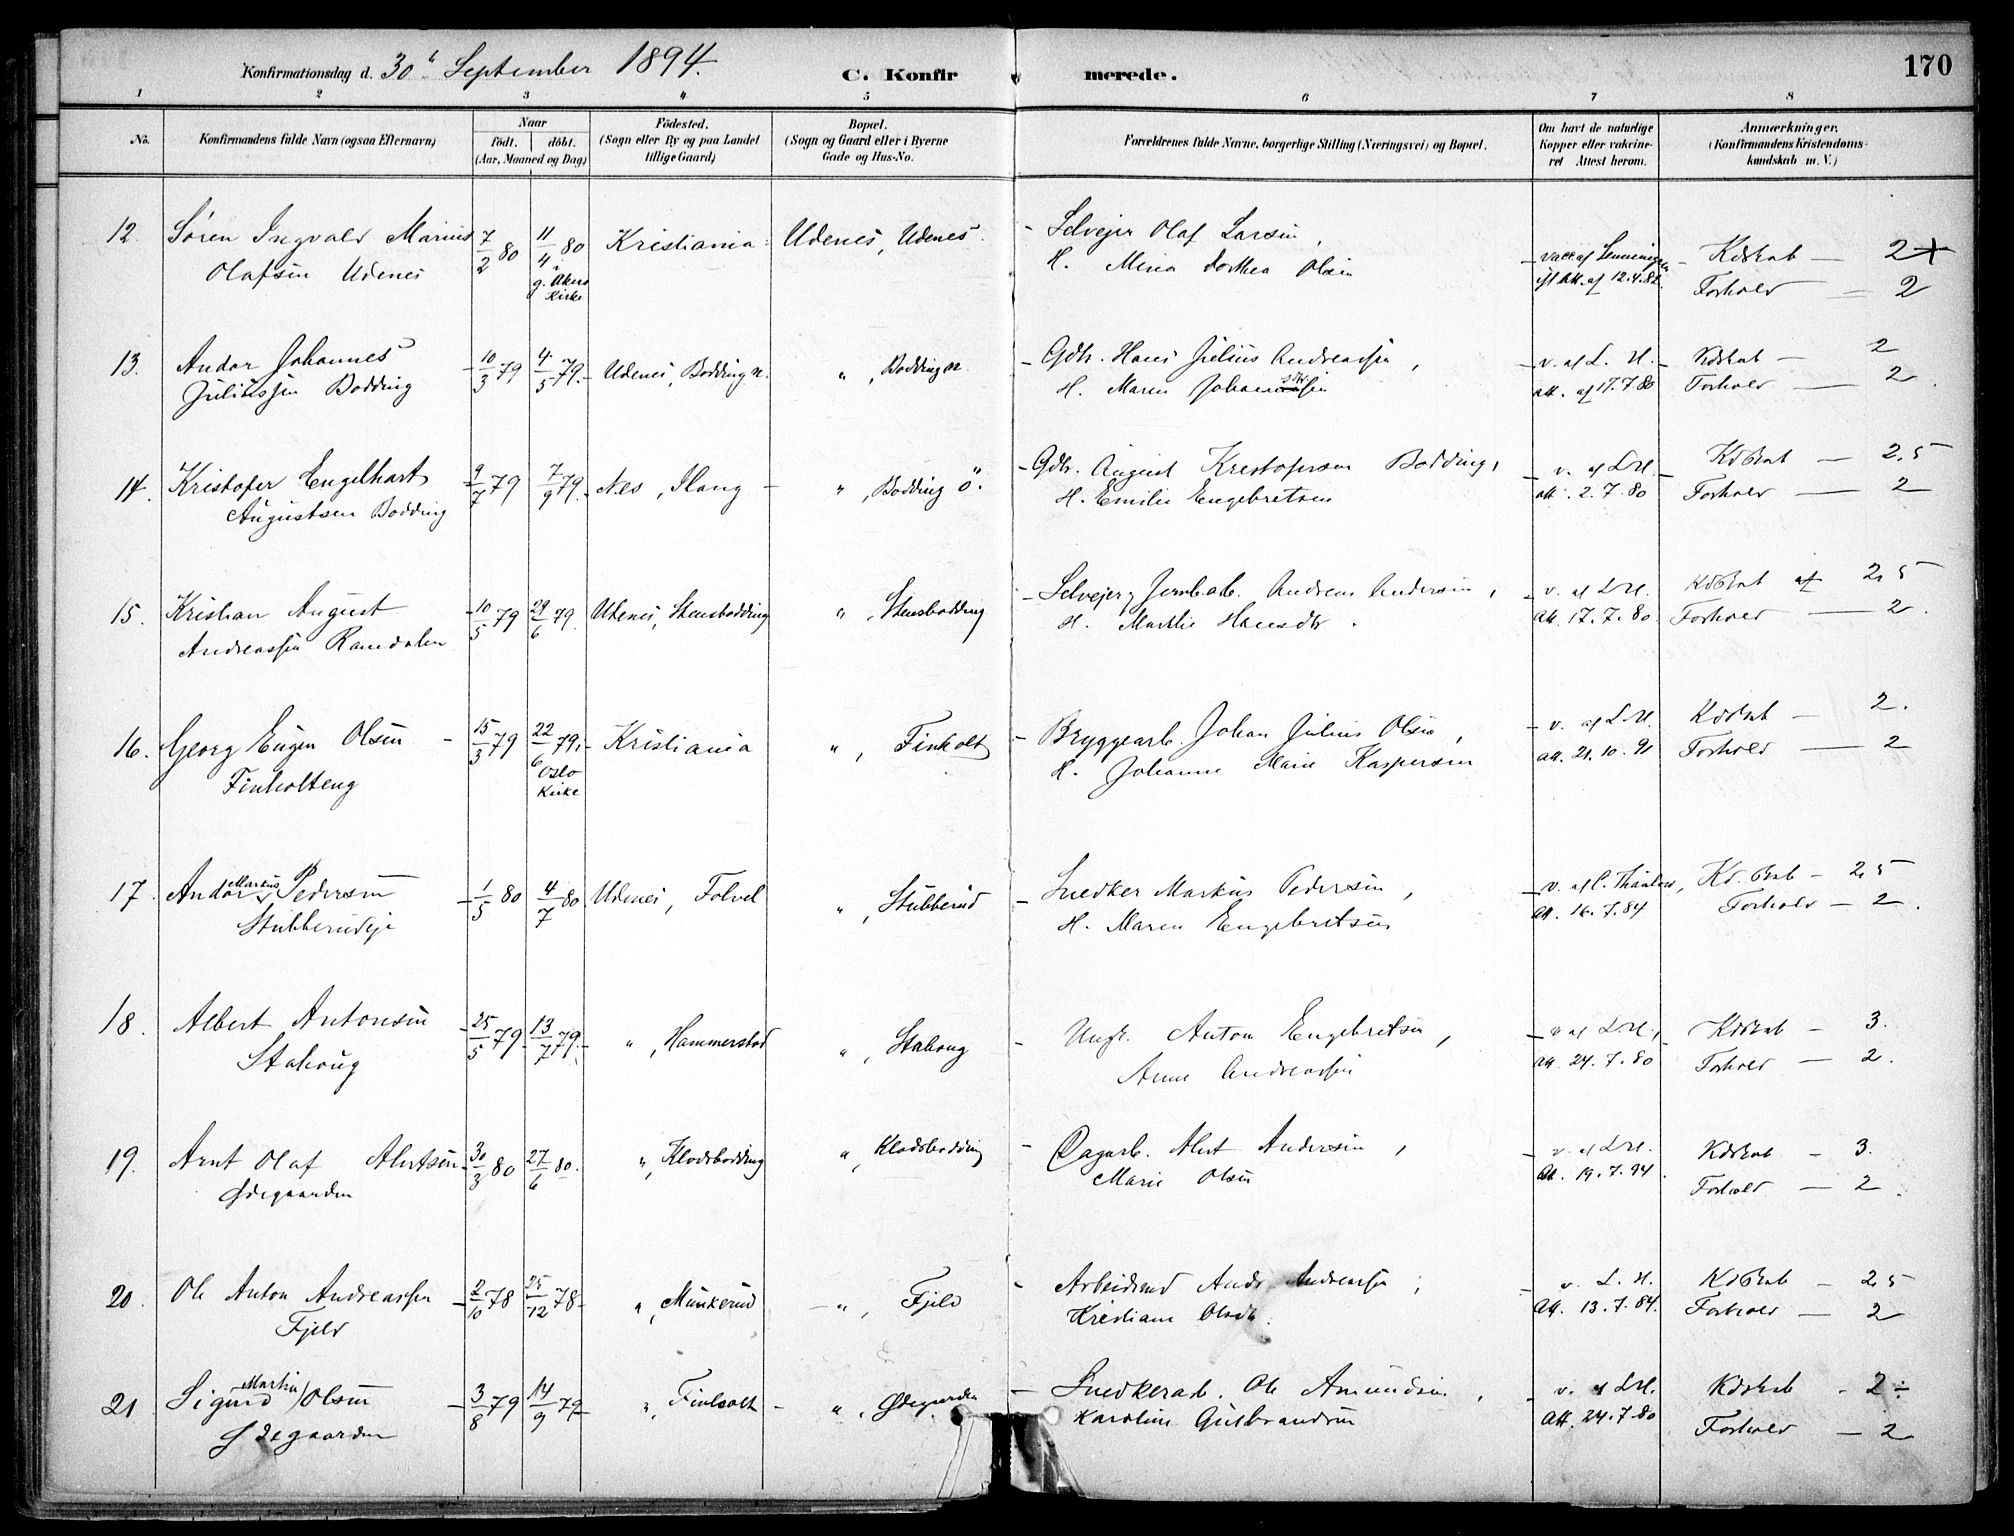 Konfirmationsdag d. 30t September 1894.
C. Konfirmerede.
170
1 2 3 4 5 6 7 8
No.
Konfirmandens fulde Navn (ogsaa Efternavn)
Naar
födt. döbt.
(Aar, Maaned og Dag)
Födested.
(Sogn eller By og paa Landet
tillige Gaard)
Bopæl.
(Sogn og Gaard eller i Byerne
Gade og Hus-No.
Forældrenes fulde Navne, borgerlige Stilling (Næringsvei) og Bopæl.
Om havt de naturlige
Kopper eller vakcine-
ret Attest herom.
Anmærkninger.
(Konfirmandens Kristendoms-
kundskab m. V.)
12. Søren Ingvald Marius 7/2 80 11/4 80 Kristiania Udenes, Udenes. - Selveier Olaf Larsen,
Olafsen Udenes g. Akers Kirke H. Mina Dorthea Olsen
ifl Att. af 12.4.82. Kdskab — 2+
Forhold — 2
13. Andor Johannes - 10/3 79 4/5 79. - Udenes, Bodding n. " , Bodding n. - Gdr. Hans Julius Andreassen,
Juliussen Bodding H. Maren
v. af L. H. att. af 17.7.80 Kdskab — 2
Forhold — 2.
14. Kristofer Engelhart 9/7 79 7/9 79. - Nes, Ilang - " , Bodding ö. - Gdr. August Kristofersen Bodding,
Augustsen Bodding H. Emilie Engebretsen
v. af L.H. att. 2.7.80 Kdskab — 2,5
Forhold — 2
15. Kristian August - 10/5 79 29/6 79. Udenes, Stensbodding " , Stensbodding - Selveier, Jernbarb. Andreas Andersen,
Andreassen Ramdalen H. Mathie Hansdtr.
v. af L.H. Att. 17.7.80. Kdskab af 2,5
Forhold — 2.
16. Georg Eugen Olsen - 15/3 79 22/6 79. - Kristiania " , Finholt - Bryggearb. Johan Julius Olsen,
Finholteng Oslo Kirke H. Johanne Marie Kaspersen
v. af L.H. Att. 21.10.91 Kdskab — 2.
Forhold — 2
17. Andor Markus Pedersen - 1/5 80 4/7 80 Udenes, Folvel " , Stubberud - Snedker Markus Pedersen,
Stubberudeje H. Maren Engebretsen
v. af C. Thaulow, Att. 16.7.84 Kd.skab — 2,5
Forhold — 2.
18. Albert Antonsen - 25/5 79 - 13/7 79. - " , Hammerstad " , Stahaug - Ungk. Anton Engebretsen,
Stahaug Anne Andreassen
v. af L.H., Att. 24.7.80 Kdskab — 3.
Forhold — 2.
19. Arnt Olaf Alertsen 30/3 80 27/6 80. " , Klodsbodding " , Klodsbodding - Dagarb. Alert Andersen,
Ødegaarden Marie Olsen
v. af L.H. Att. 19.7.94. Kdskab — 3.
Forhold — 2.
20. Ole Anton Andreassen - 2/10 78 25/12 78 - " , Munkerud - " , Fjeld - Arbeidsmd Andr. Andreassen,
Fjeld Kristiane Olsdtr.
v. L. H. Att. 13.7.84. Kdskab — 2,5
Forhold — 2
21 Sigurd Martin Olsen - 3/8 79 14/9 79 - " , Finholt - " , Ødegaarden - Snedkerarb. Ole Amundsen,
Ødegaarden Karoline Gulbrandsen
v. af L.H. Att. 24.7.80 Kdskab - 2÷
Forhold — 2